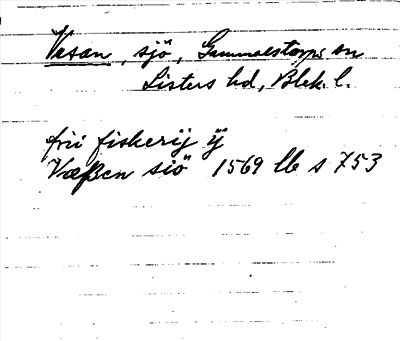 Vesan, sjö, Gammalstorps sn
Listers hd, Blek. l.
frii fiskerij ij
Væßen siö 1569 lb s 753